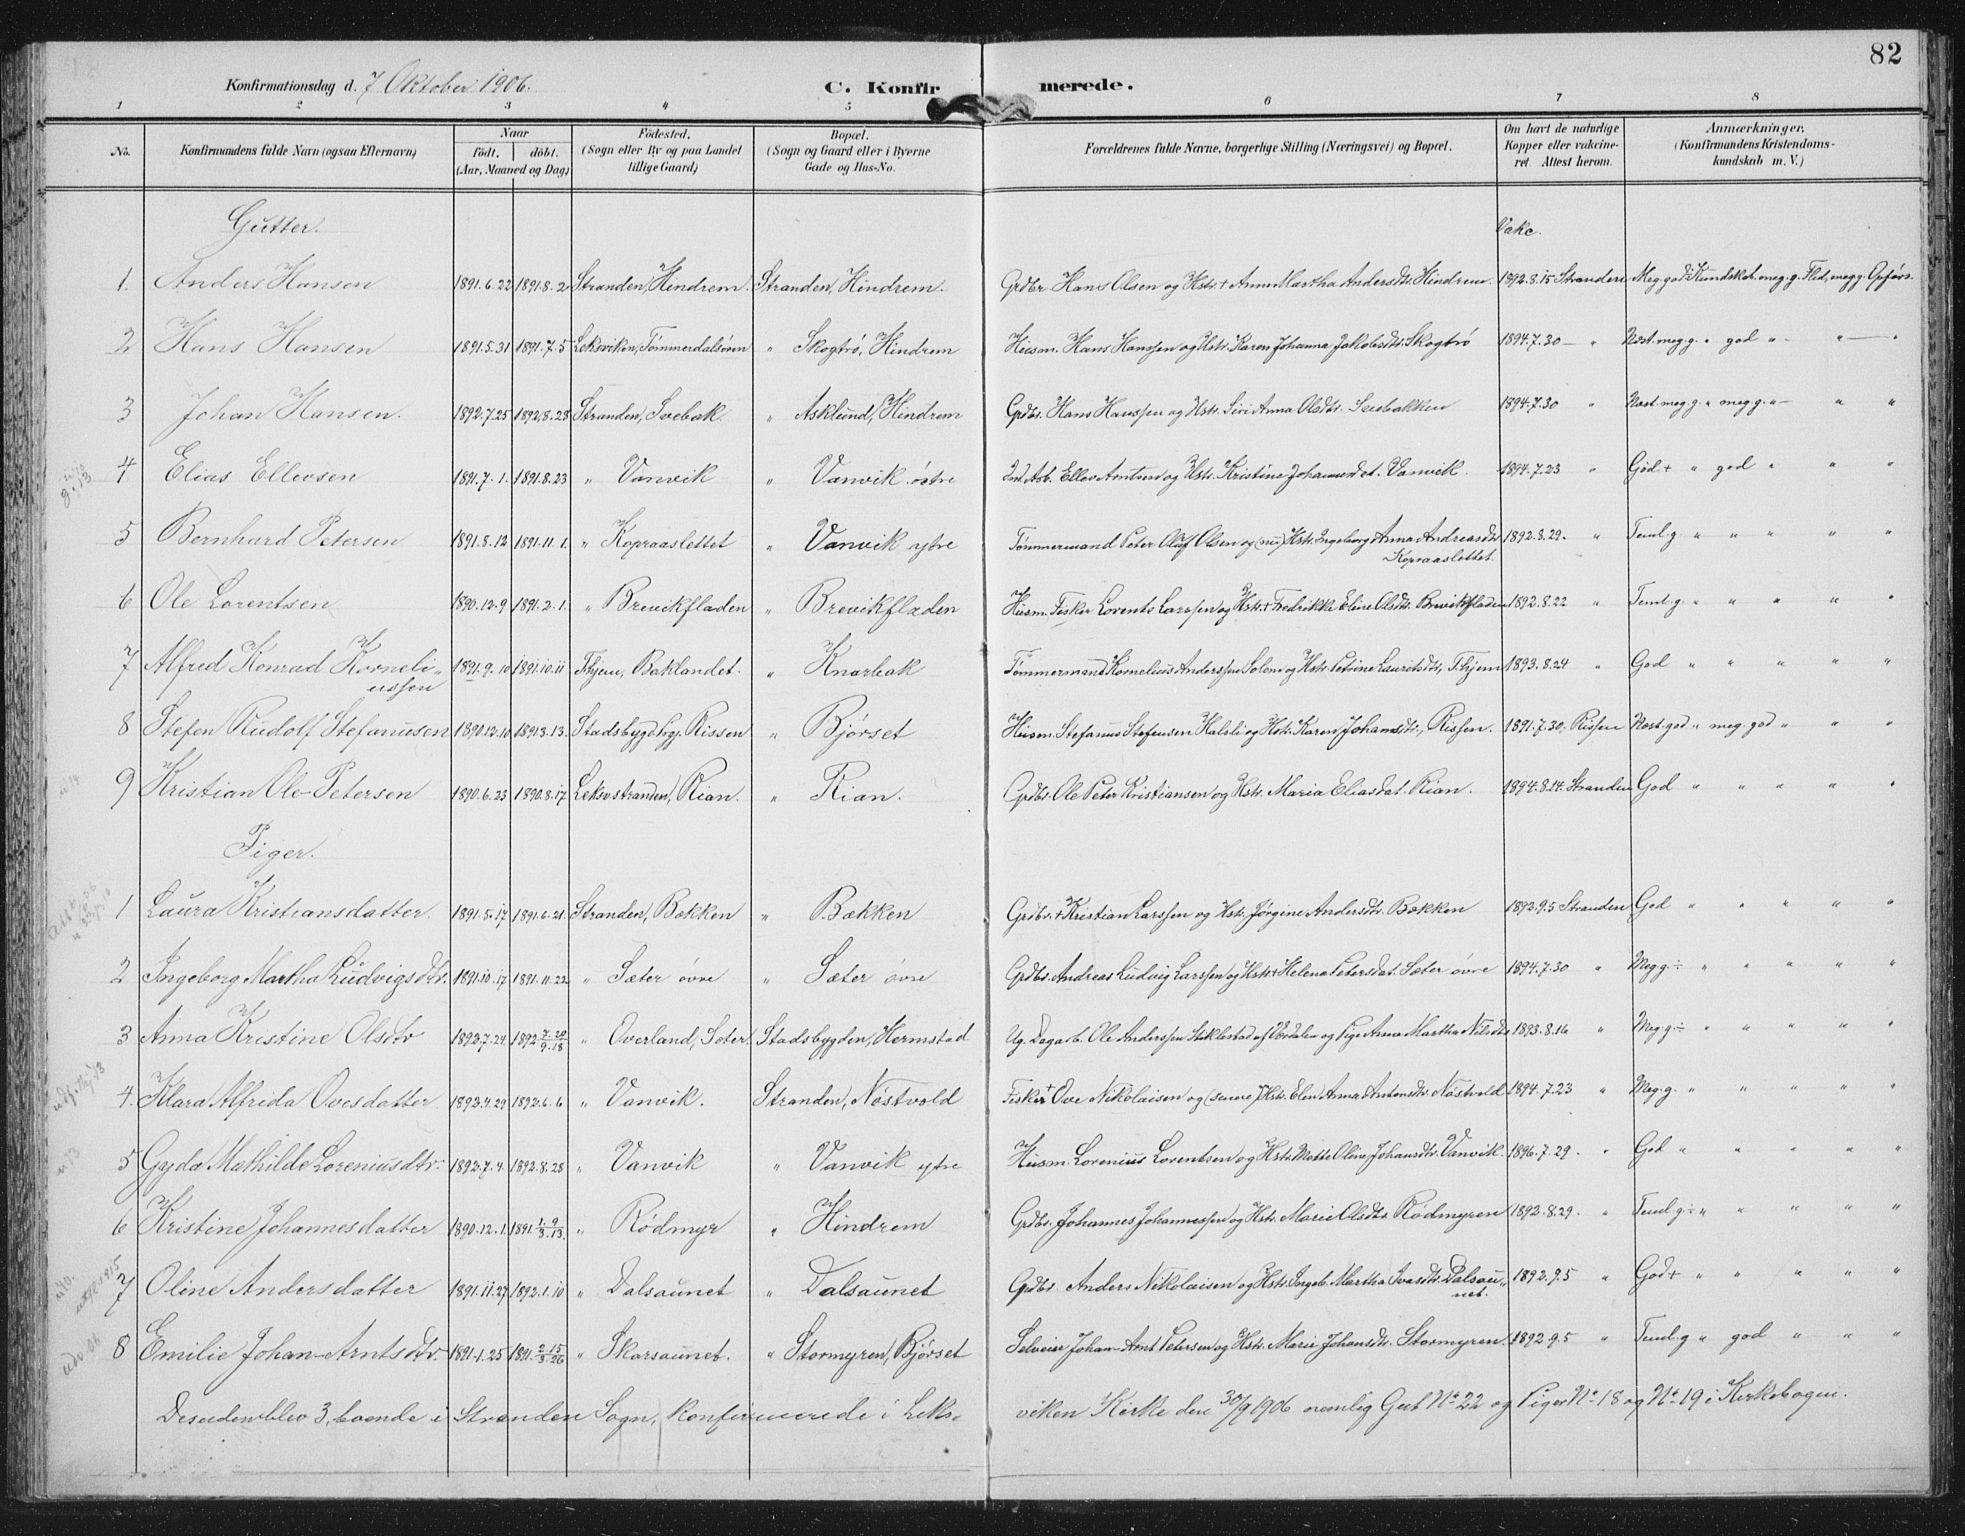 82
Konfirmationsdag d. 7 Oktober 1906. C. Konfirmerede.
1 2 3 4 5 6 7 8
No. Konfirmandens fulde Navn (ogsaa Efternavn) Naar födt. döbt. (Aar, Maaned og Dag) Födested. (Sogn eller By og paa Landet tillige Gaard) Bopæl. (Sogn og Gaard eller i Byerne Gade og Hus-No. Forældrenes fulde Navne, borgerlige Stilling (Næringsvei) og Bopæl. Om havt de naturlige Kopper eller vakcineret. Attest herom. Anmærkninger. (Konfirmandens Kristendomskundskab m. V.)
Gutter. Vakc.
1. Anders Hansen 1891.6.22 1891.8.2 Stranden, Hindrem. Stranden, Hindrem. Grdbr. Hans Olsen og Hstr. + Anne Martha Andersdtr. Hindrem. 1892.8.15 Stranden Meg. god Kundskab. meg. g. Flid, meg g. Opførs.
2 Hans Hansen 1891.5.31 1891.7.5 Leksviken, Tømmerdalsøren " Skogtrø, Hindrem Husm. Hans Hanssen og Hstr. Karen Johanna Jakobsdtr. Skogtrø 1894.7.30 — " Næst. meg. g. " god " — " — "
3 Johan Hansen. 1892.7.25 1892.8.28 Stranden, Svebak. " Asklund, Hindrem Grdbr. Hans Hanssen og Hstr. Siri Anna Olsdtr. Svebakken 1894.7.30 " Næst. meg g. " meg g. " — " "
4 Elias Ellevsen 1891.7.1. 1891.8.23 " Vanvik " Vanvik östre Ellev Arntsen og Hstr. Kristine Johannesdat. Vanvik 1894.7.23 " God + " god " " "
5 Bernhard Petersen 1891.8.12 1891.11.1. " Kopraaslettet " Vanvik ytre Tømmermand Peter Oluf Olsen og (nu) Hstr. Ingeborg Anna Andreasdtr. Kopraaslettet. 1892.8.29. " Teml. g. " " " " "
6 Ole Lorentsen 1890.12.9 1891.2.1. " Brevikfladen " Brevikfladen Husm. Fisker Lorents Larssen og Hstr. + Fredrikke Eline Olsdtr. Brevikfladen 1892.8.22 " Teml. g. " " " " "
7 Alfred Konrad Korneliussen 1891.9.10 1891.10.11 Thjem, Baklandet. " Knarbak Tømmermand Kornelius Anderssen Solem og Hstr. Petrine Lauritsdtr., Thjem 1893.8.24 " God " " " " "
8 Stefen Rudolf Stefanusen 1890.12.10 1891.3.13. Stadsbygd hg. Rissen " Bjørset Husm. Stefanus Stefensen Halsli og Hstr. Karen Johansdtr., Rissen. 1891.7.30, Rissen Næst. god " meg. god " " "
9 Kristian Ole Petersen 1890.6.23 1890.8.17 Leksvstranden, Rian. " Rian. Grdbr. Ole Peter Kristiansen og Hstr. Maria Eliasdat. Rian. 1894.8.14. Stranden God " " " " "
Piger.
1 Laura Kristiansdatter. 1891.5.17 1891.6.21. Stranden, Bækken " Bækken Grdbr. + Kristian Larssen og Hstr. Jørgine Andersdtr. Bækken 1892.9.5 Stranden God " " " " "
2 Ingeborg Martha Ludvigsdtr. 1891.10.17 1891.11.22 " Sæter övre " Sæter övre Grdbr. Andreas Ludvig Larssen og Hstr. + Helena Petersdat. Sæter övre 1894.7.30 " Meg g. ÷ " " " " "
3 Anna Kristine Olsdtr 1892.7.24 1892 7.28/9.18 " Overland, Sæter. Stadsbygden, Hermstad Ug. Dagarb. Ole Anderssen Stiklestad af Værdalen og Pige Anna Martha Nilsdtr 1893.8.16 " Meg. g. ÷ " " " " "
4. Klara Alfrida Ovesdatter. 1892.4.29 1892.6.6 " Vanvik. Stranden, Nöstvold Fisker + Ove Nikolaisen og (senere) Hstr. Elen Anna Antonsdtr. Nöstvold 1894.7.23 " Meg. g. " " " " "
5 Gyda Mathilde Loreniusdtr. 1892.7.4. 1892.8.28 " Vanvik " Vanvik ytre Husm. Lorenius Lorentsen og Hstr. Mette Oline Johansdtr. Vanvik. 1896.7.29. " God " " " " "
6 Kristine Johannesdatter 1890.12.1. 1891. 1.9/3.13. " Rödmyr " Hindrem Grdbr. Johannes Johannessen og Hstr. Marie Olsdtr. Rödmyren 1892.8.29. " Teml. g ÷ " " " " "
7 Oline Andersdatter 1891.11.27 1892.1.10 " Dalsaunet " Dalsaunet Grdbr. Anders Nikolaisen og Hstr. Ingeb. Martha Ivarsdtr. Dalsaunet. 1892.9.5 " God + " " " " "
8 Emilie Johan-Arntsdtr. 1891.1.25 1891. 2.15/3.26 " Skarsaunet. " Stormyren, Bjørset Selveier Johan-Arnt Petersen og Hstr. Marie Johansdtr. Stormyren. 1892.9.5 " Teml. g " god " " "
Desuden blev 3, boende i Stranden Sogn, konfirmerede i Leksviken Kirke den 30/9 1906 nemlig Gut No 22 og Piger No 18 og No 19 i Kirkebogen.